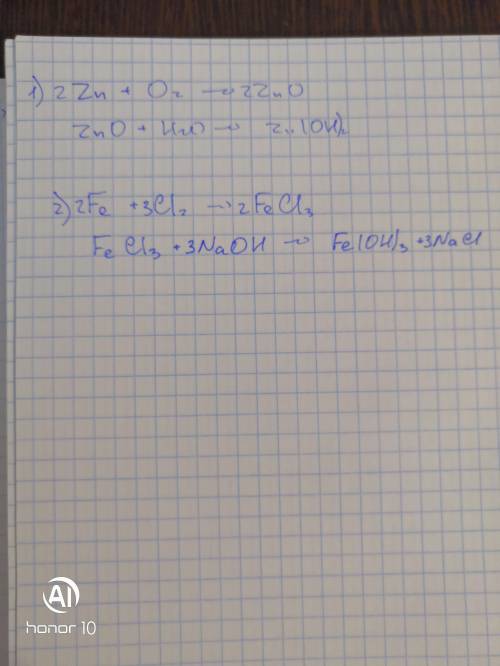 1) 2 Zn + O₂ → 2ZnO
ZnO + H₂O → Zn(OH)₂
2) 2Fe + 3Cl₂ → 2FeCl₃
FeCl₃ + 3NaOH → Fe(OH)₃ + 3NaCl
AI
honor 10